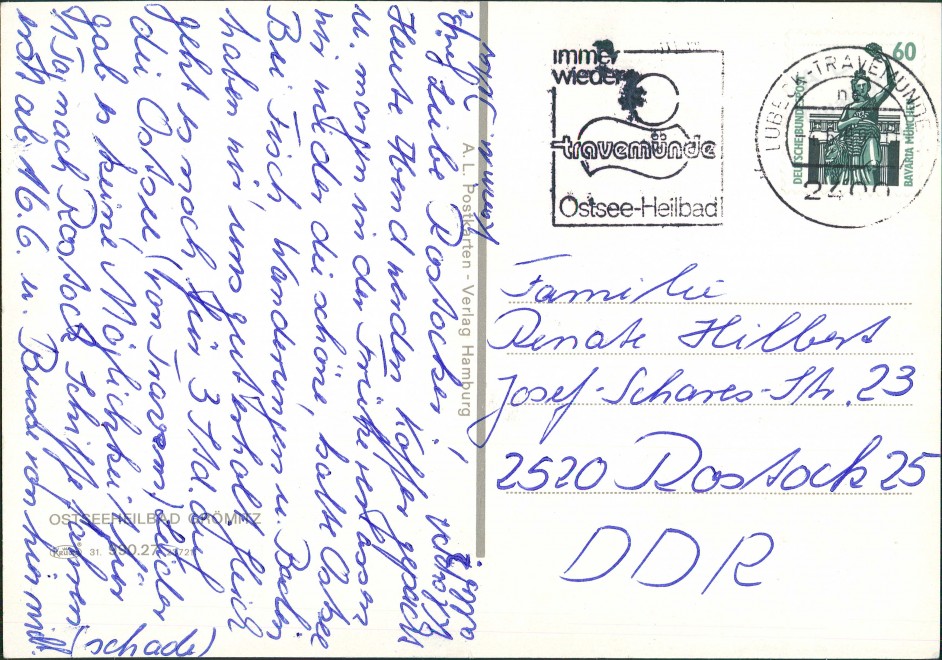 Liebe Rostocker!
Heute Abend werden Koffer gepackt
u. morgen in der Frühe verlassen
wir wieder die schöne, kalte Ostsee
Bei Fisch, Wanderungen u. Baden
haben wir uns gut erholt. Gleich
geht es noch für 3 Std. auf
die Ostsee (von Travem) Leider
gab es keine Möglichkeit für
1 Tag nach Rostock Schiffe fahren
erst ab 16.6. u. Busse von hier
(schade)
A.L. Postkarten - Verlag Hamburg
OSTSEEHEILBAD GRÖMITZ
Krüger 31. 590.27
immer
wieder
travemünde
Ostsee-Heilbad
LÜBECK-TRAVEMÜNDE
2400
60
DEUTSCHE BUNDESPOST
BAVARIA MÜNCHEN
Familie
Renate Hilbert
Josef-Schares-Str. 23
2520 Rostock 25
DDR